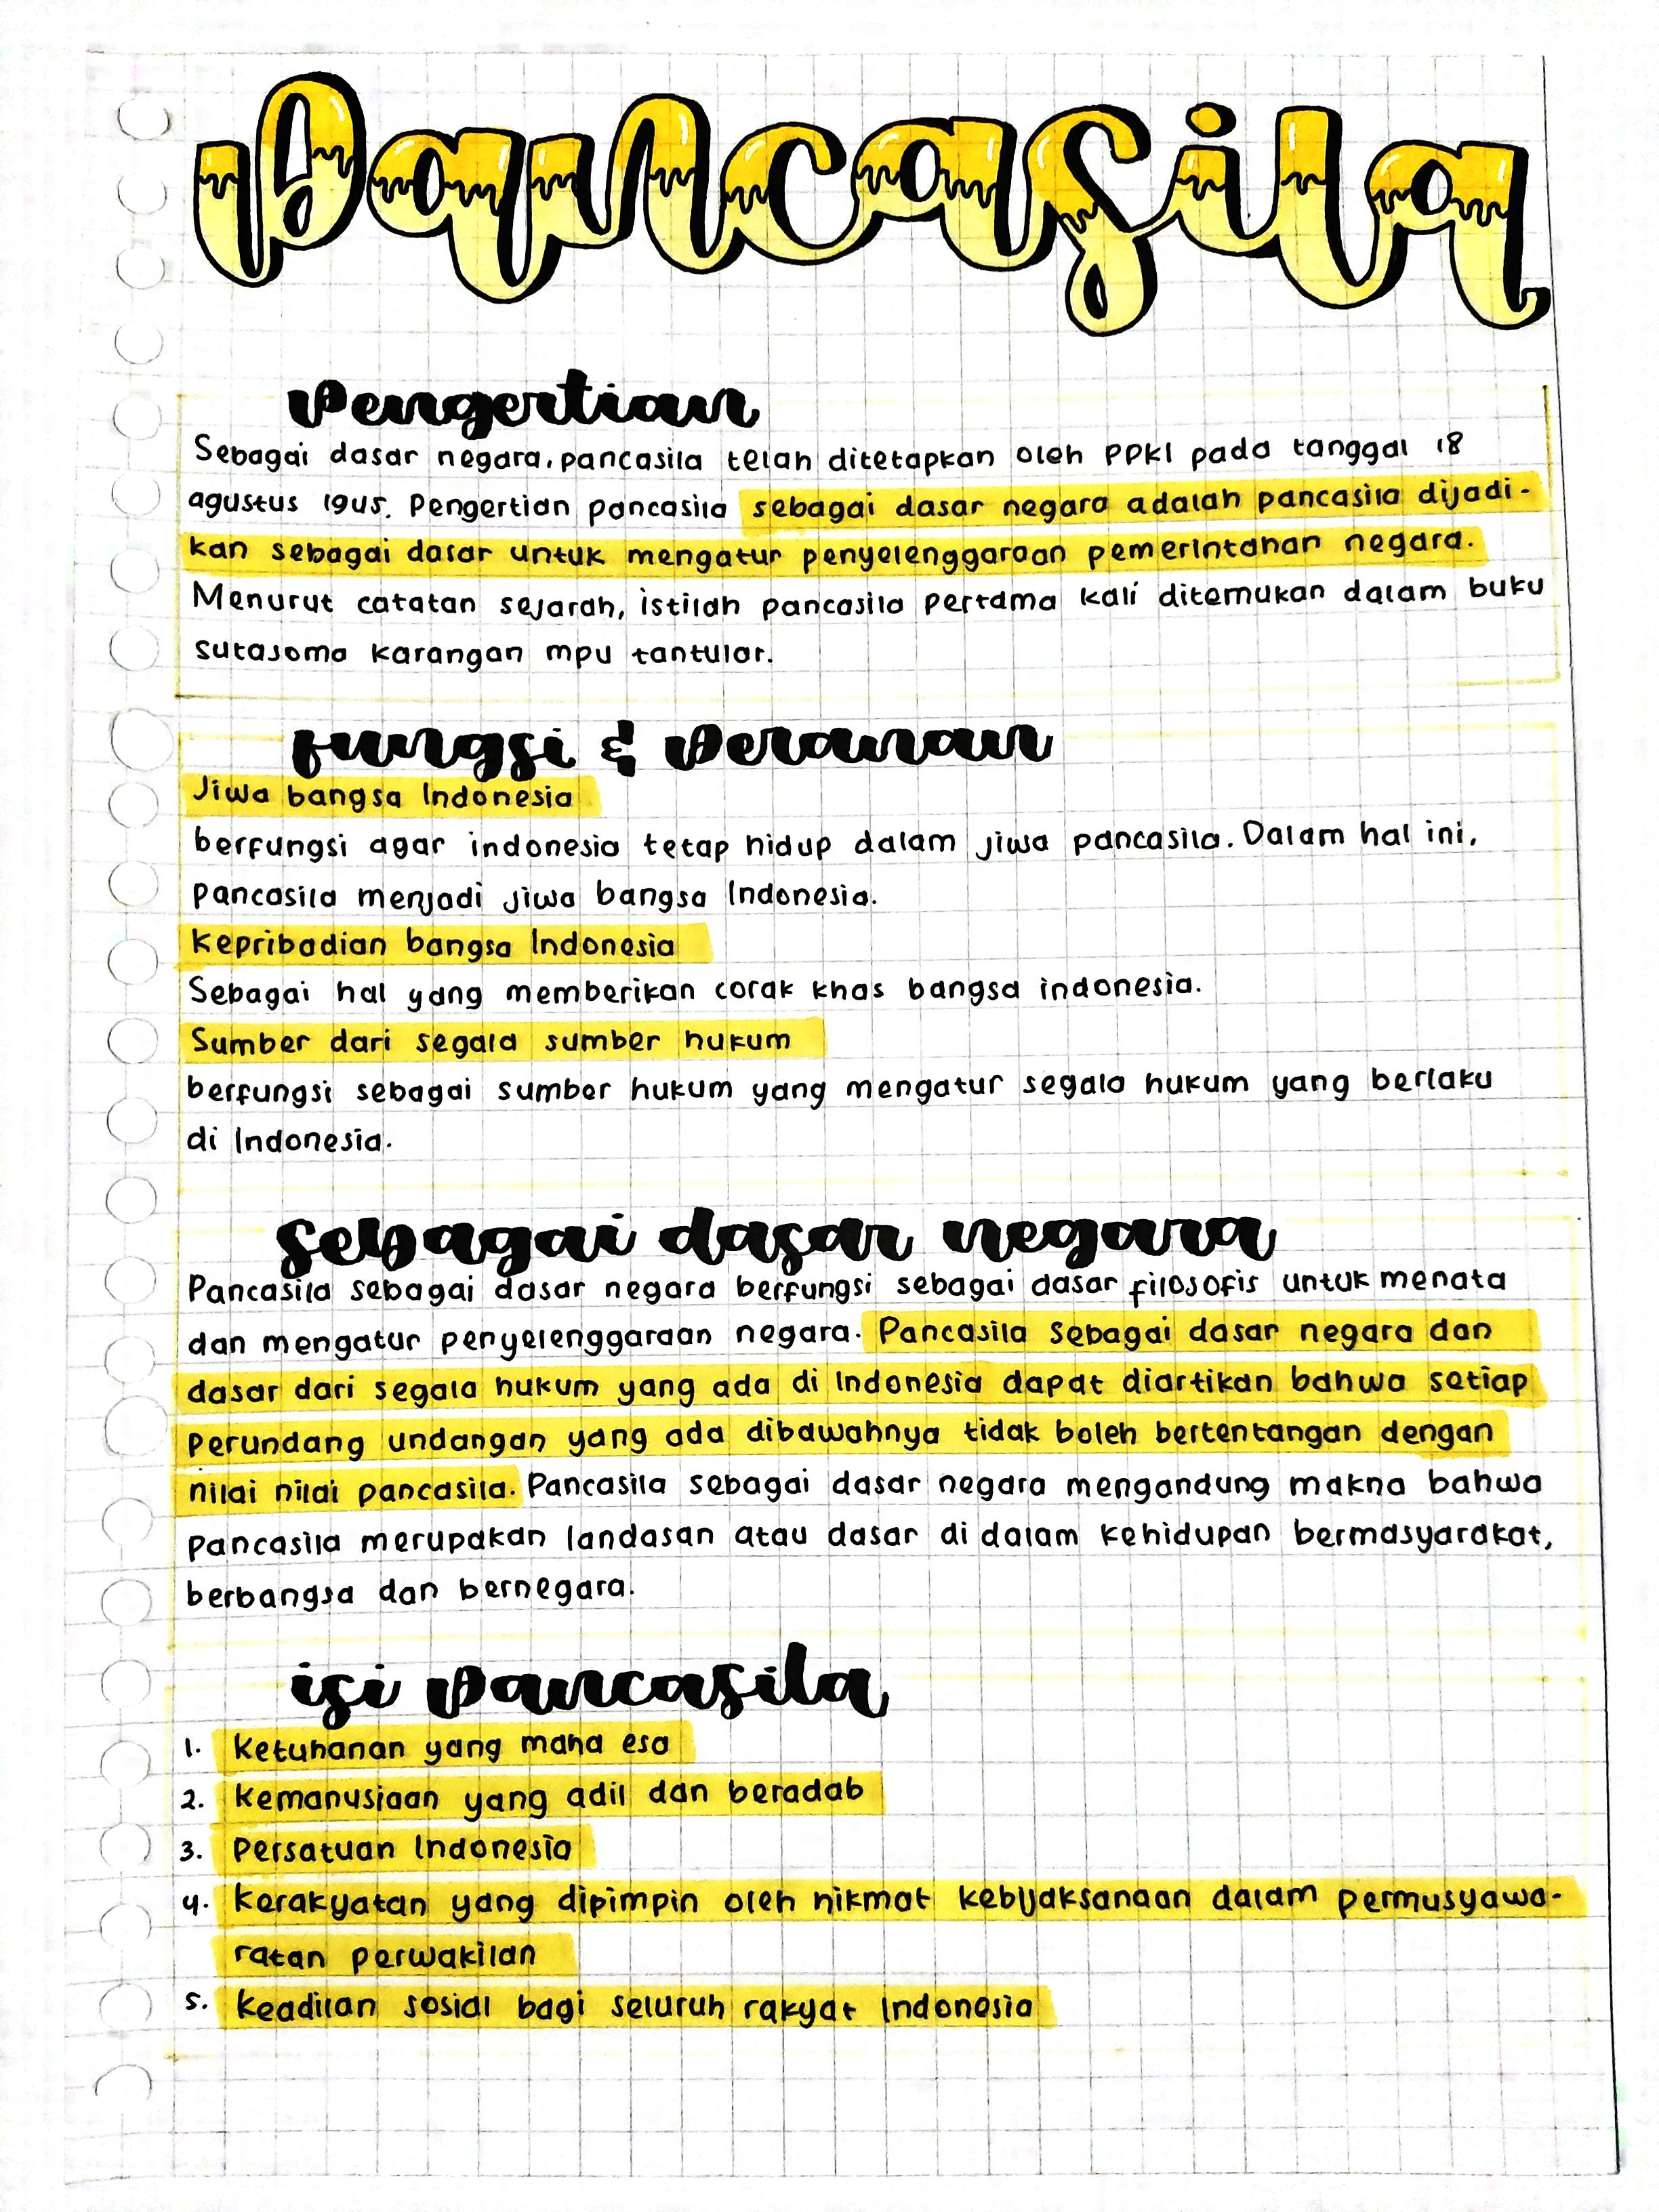 Pancasila
Pengertian
Sebagai dasar negara, pancasila telah ditetapkan oleh PPKI pada tanggal 18
agustus 1945. Pengertian pancasila sebagai dasar negara adalah pancasila dijadi-
kan sebagai dasar untuk mengatur penyelenggaraan pemerintahan negara.
Menurut catatan sejarah, istilah pancasila pertama kali ditemukan dalam buku
sutasoma karangan mpu tantular.
fungsi & Peranan
Jiwa bangsa Indonesia
berfungsi agar indonesia tetap hidup dalam jiwa pancasila. Dalam hal ini,
pancasila menjadi jiwa bangsa Indonesia.
Kepribadian bangsa Indonesia
Sebagai hal yang memberikan corak khas bangsa indonesia.
Sumber dari segala sumber hukum
berfungsi sebagai sumber hukum yang mengatur segala hukum yang berlaku
di Indonesia.
sebagai dasar negara
Pancasila sebagai dasar negara berfungsi sebagai dasar filosofis untuk menata
dan mengatur penyelenggaraan negara. Pancasila sebagai dasar negara dan
dasar dari segala hukum yang ada di Indonesia dapat diartikan bahwa setiap
perundang undangan yang ada dibawahnya tidak boleh bertentangan dengan
nilai nilai pancasila. Pancasila sebagai dasar negara mengandung makna bahwa
pancasila merupakan landasan atau dasar di dalam kehidupan bermasyarakat,
berbangsa dan bernegara.
isi Pancasila
1. Ketuhanan yang maha esa
2. Kemanusiaan yang adil dan beradab
3. Persatuan Indonesia
4. Kerakyatan yang dipimpin oleh hikmat kebijaksanaan dalam permusyawa-
ratan perwakilan
5. Keadilan sosial bagi seluruh rakyat Indonesia